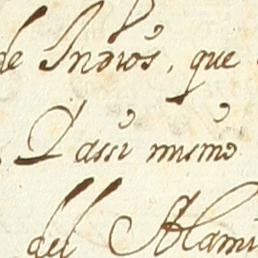 de Indios, que
Y assi mismo
del Alami